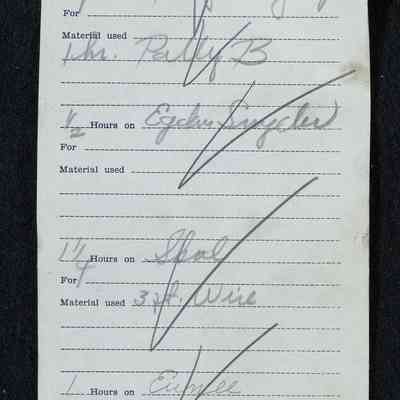 For
Material used
1 hr. Patty B
1/2 Hours on Snyder
For
Material used
1 1/4 Hours on
For
Material used 3 ft. Wire
1 Hours on